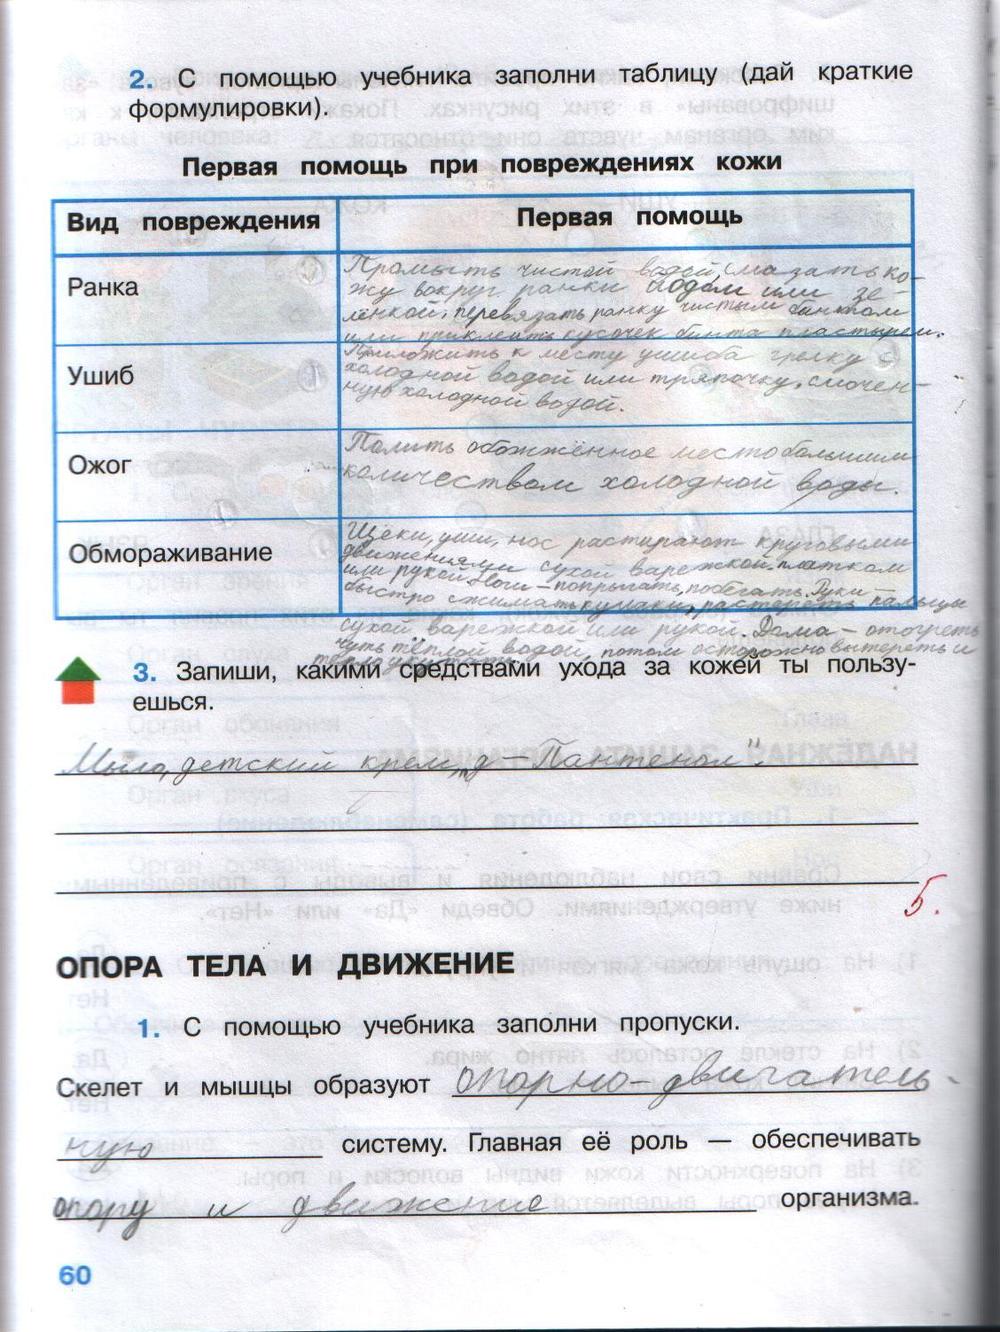 2. С помощью учебника заполни таблицу (дай краткие
формулировки).
Первая помощь при повреждениях кожи
Вид повреждения Первая помощь
Ранка
Промыть чистой водой, смазать ко-
жу вокруг ранки йодом или зе-
лёнкой, перевязать ранку чистым бинтом
или приклеить кусочек бинта пластырем.
Ушиб
Приложить к месту ушиба грелку с
холодной водой или тряпочку, смочен-
ную холодной водой.
Ожог
Полить обожжённое место большим
количеством холодной воды.
Обмораживание
Щёки, уши, нос растирают круговыми
движениями сухой варежкой, платком
или рукой. Ноги - попрыгать, побегать. Руки -
быстро сжимать кулаки, растереть пальцы
сухой варежкой или рукой. Дома - отогреть
чуть тёплой водой, потом осторожно вытереть и
3. Запиши, какими средствами ухода за кожей ты пользу-
ешься.
Мыло, детский крем, "Д-Пантенол".
5.
ОПОРА ТЕЛА И ДВИЖЕНИЕ
1. С помощью учебника заполни пропуски.
Скелет и мышцы образуют опорно-двигатель-
ную систему. Главная её роль — обеспечивать
опору и движение организма.
60